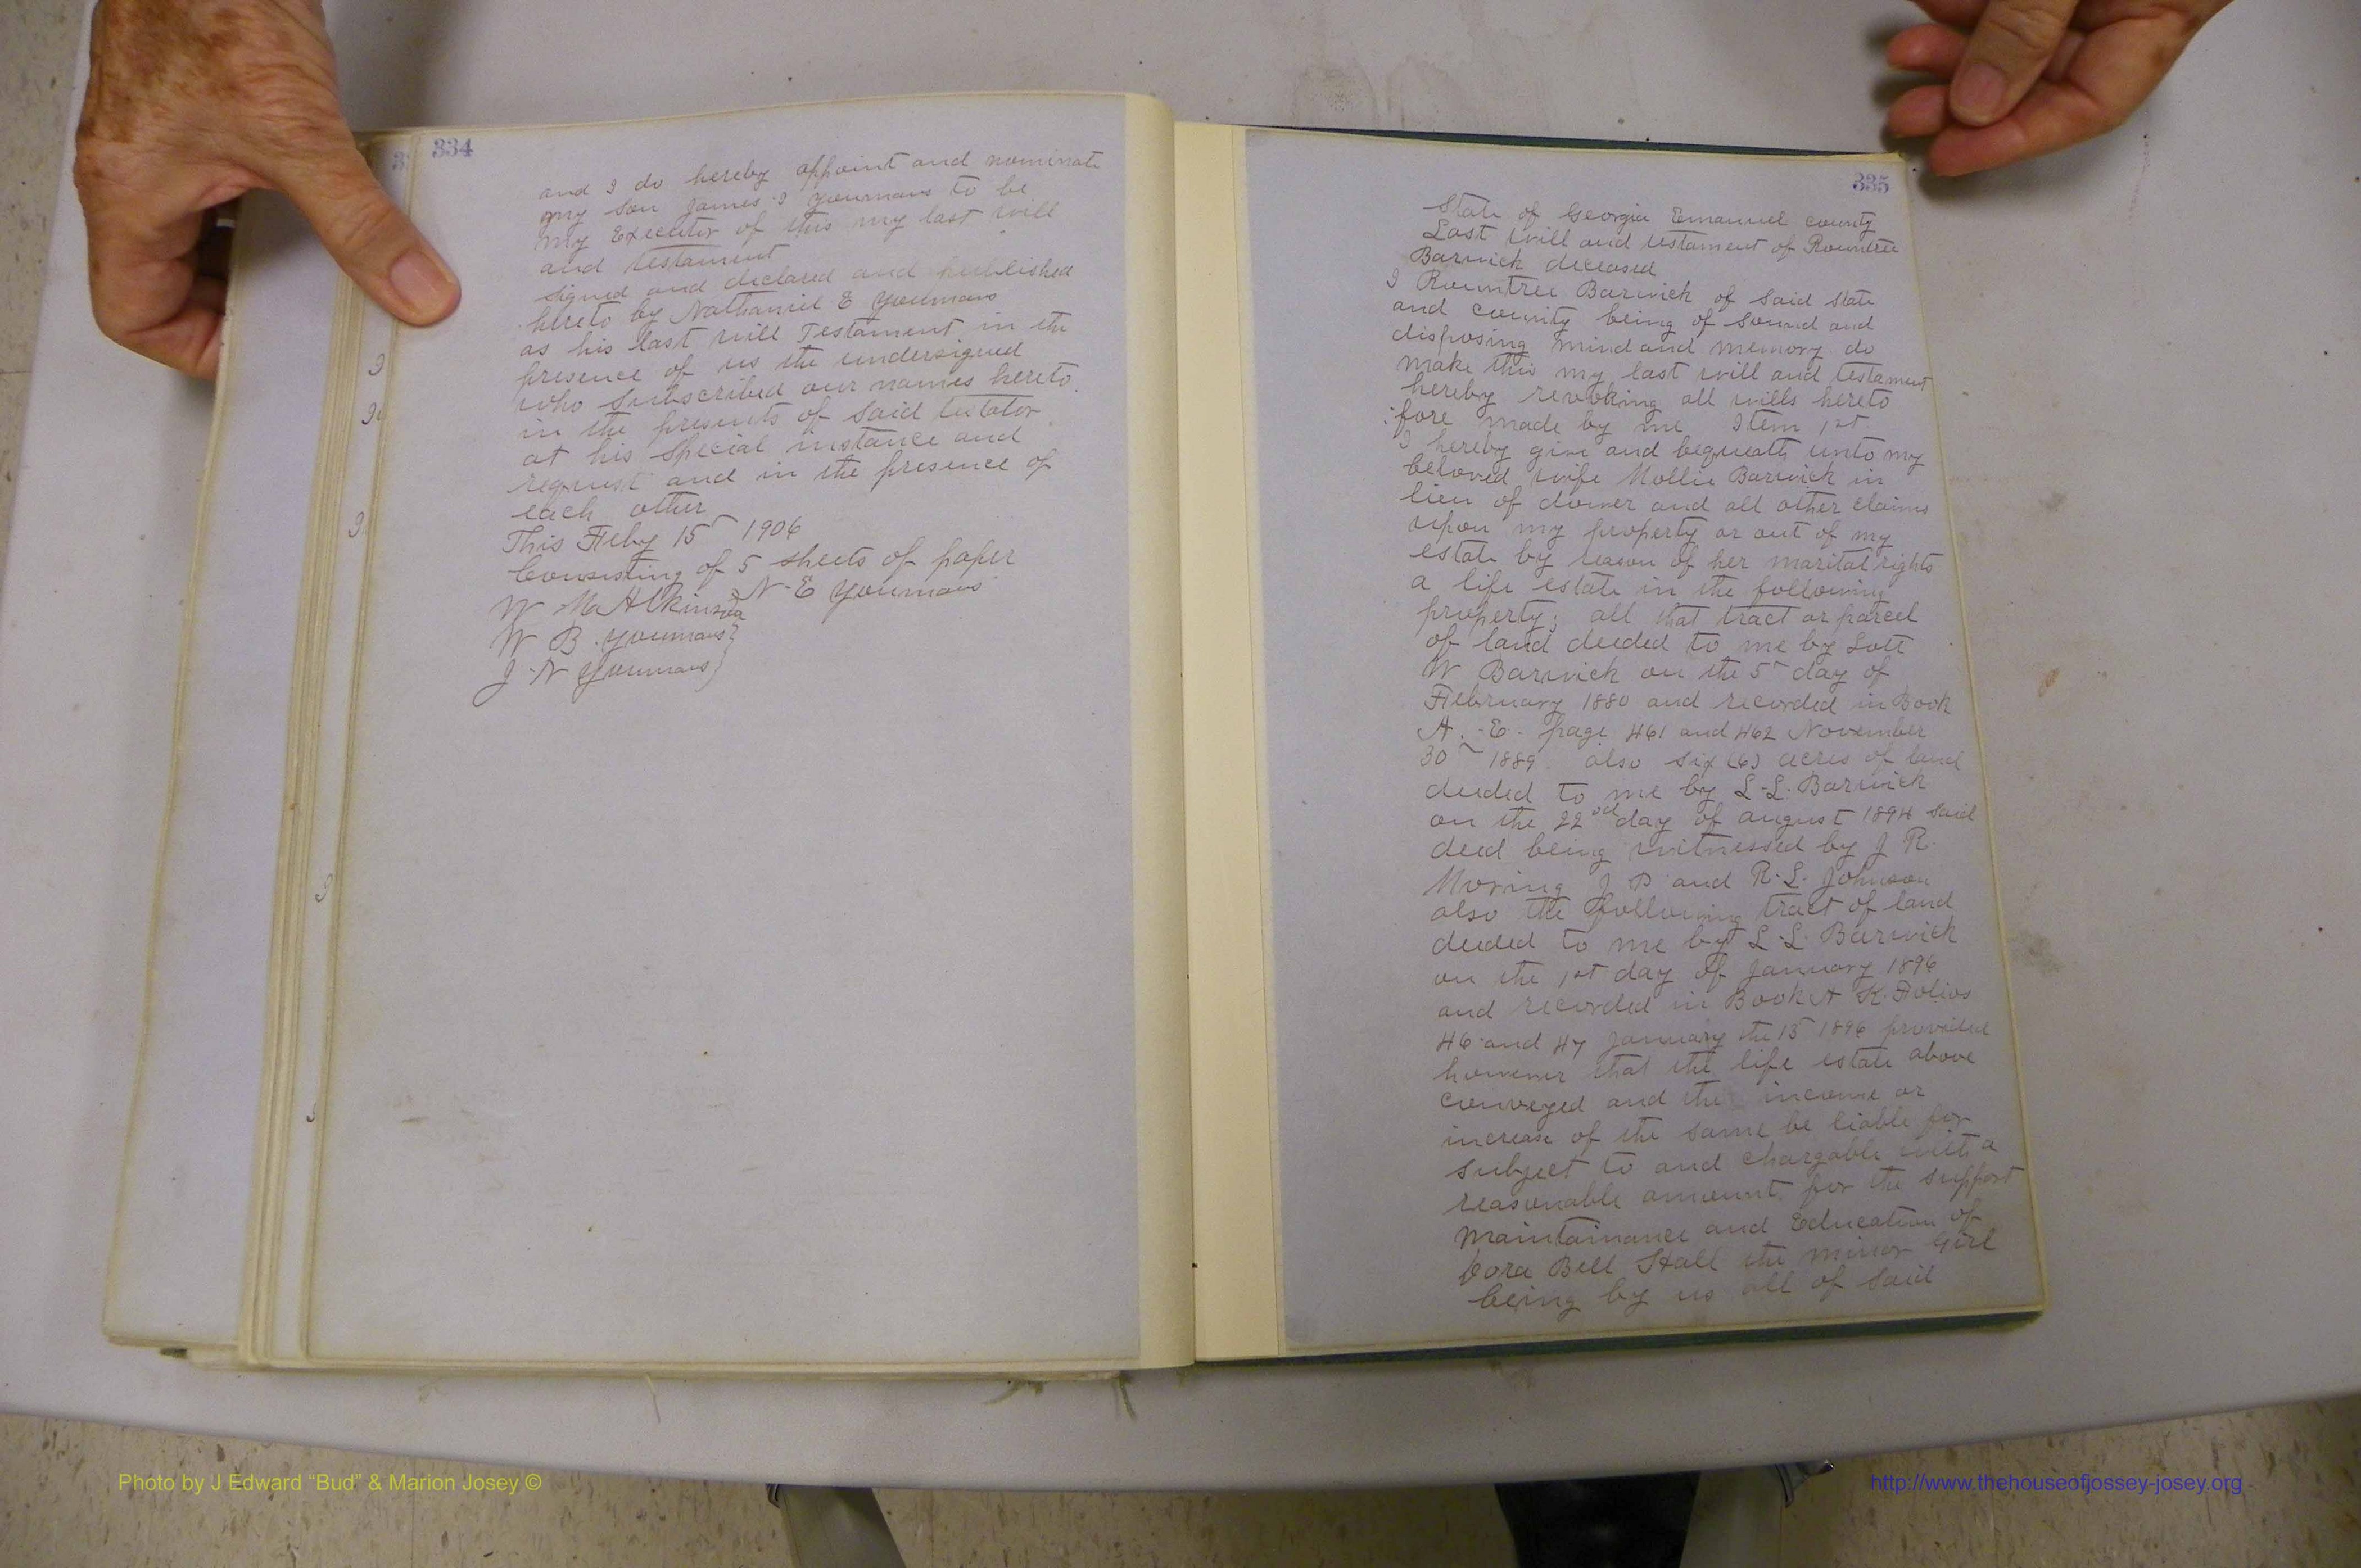 334
and I do hereby appoint and nominate
my son James I Youmans to be
my Executor of this my last will
and testament
signed and declared and published
hereto by Nathaniel E Youmans
as his last will Testament in the
presence of us the undersigned
who subscribed our names hereto
in the presents of said testator
at his special instance and
request and in the presence of
each other
This Feby 15 1906
Consisting of 5 sheets of paper
N E Youmans
W M
W B Youmans
J N Youmans
335
State of Georgia Emanuel county
Last will and testament of Rountree
Barwick deceased
I Rountree Barwick of said state
and county being of sound and
disposing mind and memory do
make this my last will and testament
hereby revoking all wills hereto
fore made by me Item 1st
I hereby give and bequeath unto my
beloved wife Mollie Barwick in
lieu of dower and all other claims
upon my property or out of my
estate by reason of her marital rights
a life estate in the following
property; all that tract or parcel
of land deeded to me by Lott
W Barwick on the 5 day of
February 1880 and recorded in Book
A. E. page 461 and 462 November
30 1889. also six (6) acres of land
deeded to me by L. L. Barwick
on the 22nd day of august 1894 said
deed being witnessed by J R.
Moring J P and R. L. Johnson
also the following tract of land
deeded to me by L L Barwick
on the 1st day of January 1896
and recorded in Book A K. Folios
46 and 47 January the 15 1896 provided
however that the life estate above
conveyed and the income or
increase of the same be liable for
subject to and chargable with a
reasonable amount for the support
maintainance and Education of
Cora Bell Hall the minor Girl
being by us all of said
Photo by J Edward “Bud” & Marion Josey ©
http://www.thehouseofjossey-josey.org